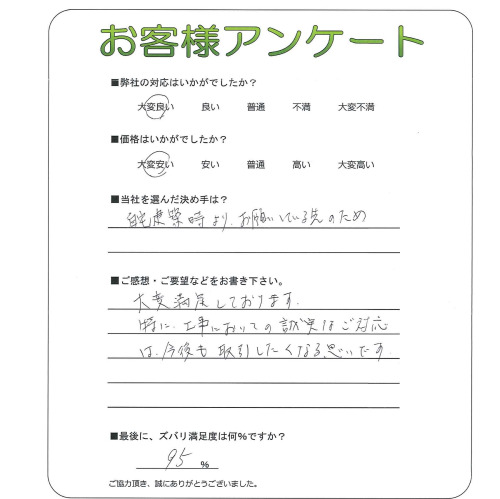 お客様アンケート
■弊社の対応はいかがでしたか？
大変良い 良い 普通 不満 大変不満
■価格はいかがでしたか？
大変安い 安い 普通 高い 大変高い
■当社を選んだ決め手は？
自宅建築時より、お願いしている先のため
■ご感想・ご要望などをお書き下さい。
大変満足しております。
特に、工事においての誠実なご対応
は、今後も取引したくなる思いです。
■最後に、ズバリ満足度は何%ですか？
95 %
ご協力頂き、誠にありがとうございました。